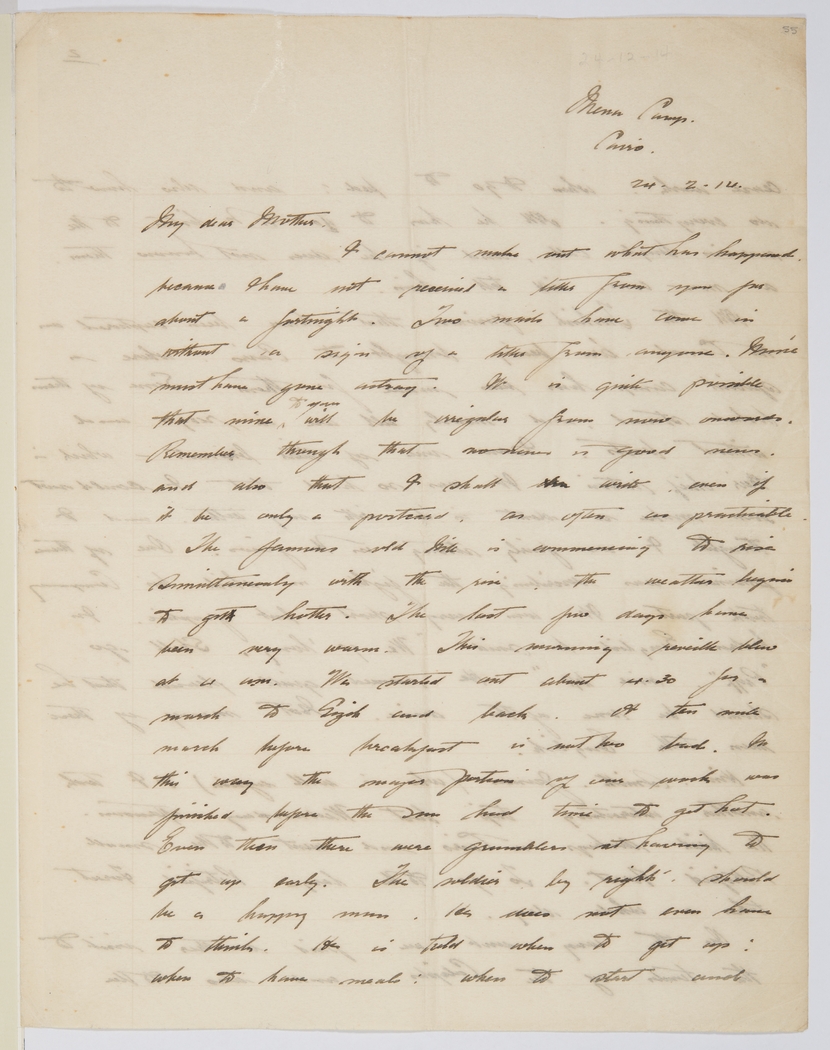 55
24-12-14
Mena Camp.
Cairo.
24. 2. 14.
My dear Mother.
I cannot make out what has happened.
because I have not received a letter from you for
about a fortnight. Two mails have come in
without a sign of a letter from anyone. Mine
must have gone astray. It is quite possible
to you
that mine will be irregular from now onwards.
Remember though that no news is good news.
and also that I shall write, even if
it be only a postcard, as often as practicable.
The famous old Nile is commencing to rise
simultaneously with the rise, the weather begins
to get hotter. The last few days have
been very warm. This morning reveille blew
at 4 am. We started out about 4.30 for a
march to Gizeh and back. A ten mile
march before breakfast is not too bad. In
this way the major portion of our work was
finished before the sun had time to get hot.
Even then there were grumblers at having to
get up early. The soldier by rights should
be a happy man. He does not even have
to think. He is told when to get up:
when to have meals: when to start and